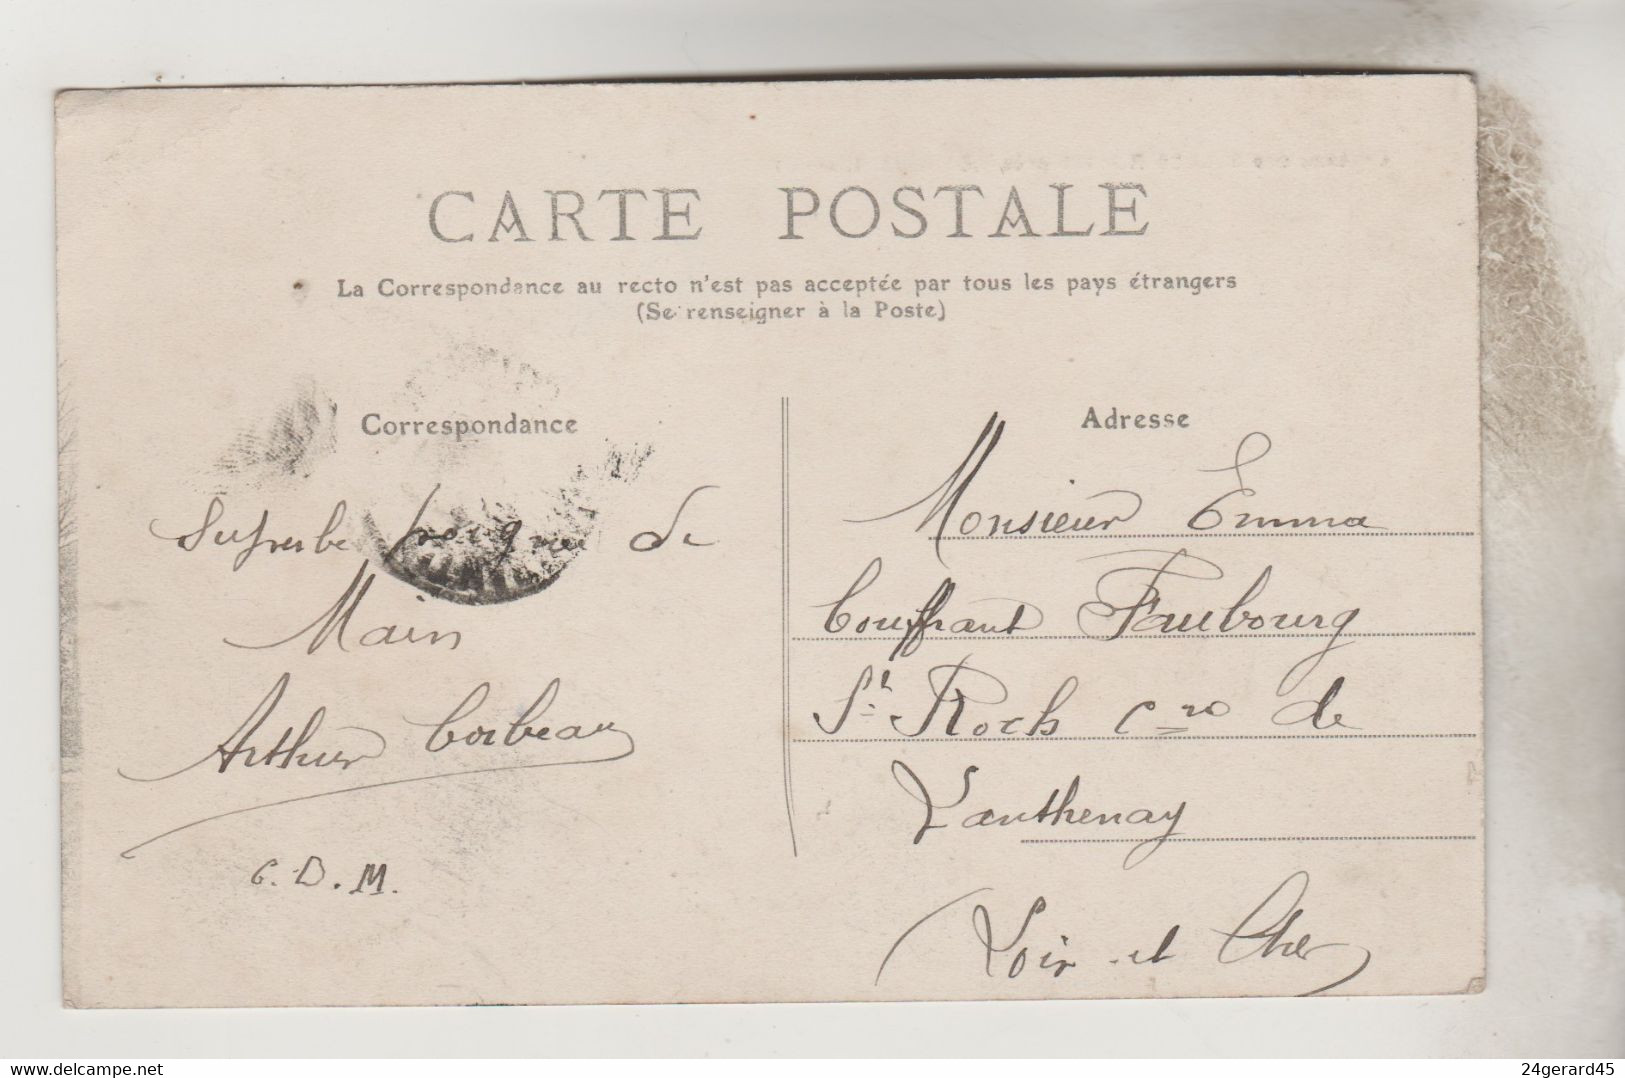 CARTE POSTALE
La Correspondance au recto n'est pas acceptée par tous les pays étrangers
(Se renseigner à la Poste)
Correspondance
Superbe poignée de
Main
Arthur Corbeau
C. D. M.
Adresse
Monsieur Emma
Couffrant Faubourg
St Roch Cne de
Lanthenay
Loir et Cher
www.delcampe.net
24gerard45